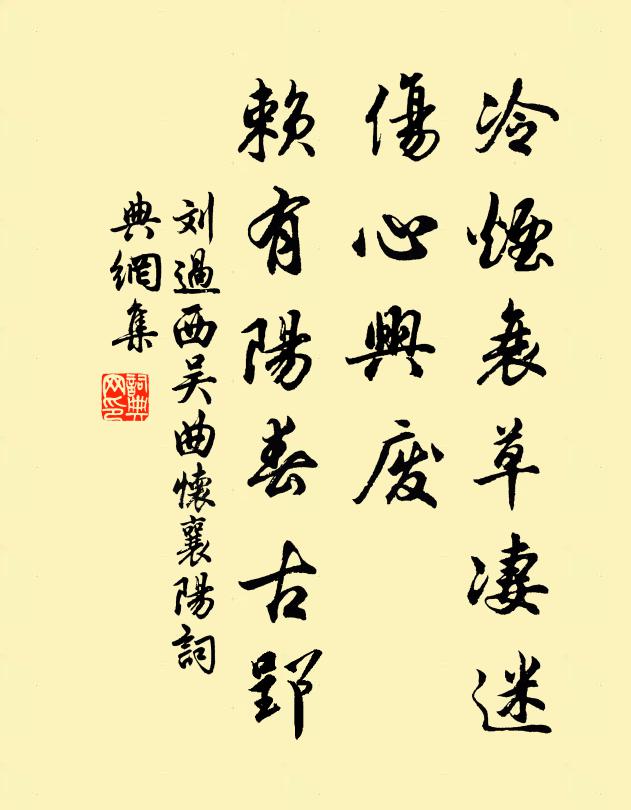 冷煙衰草淒迷
傷心興廢
賴有陽春古郢
刘過西吴曲懷襄陽詞
典網集
詞典
网印